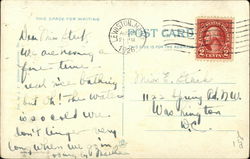 THIS SPACE FOR WRITING
POST CARD
LEWISTON,
1926
2 CENTS 2
Dear Miss
We are having a
fine time -
real nice bathing
but oh! the water
is so cold we
don't linger very
long when we go in
Miss E.
1122 Spring Rd. N.W.
Washington
D.C.